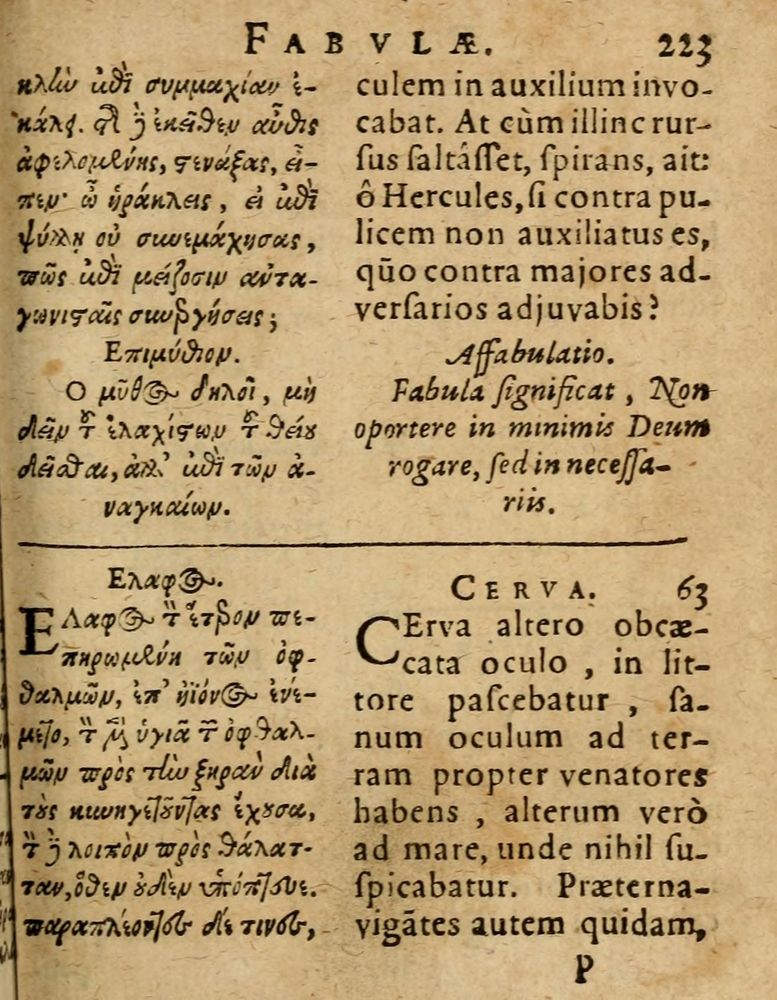 FABVLÆ. 223
κλῆν ἐπὶ συμμαχίαν ἐ-
κάλει. τῆς δὲ ἐκεῖθεν αὖθις
ἀφελομένης, στενάξας, εἶ-
πεν· ὦ ἡράκλεις, εἰ ἐπὶ
ψύλλῃ οὐ συνεμάχησας,
πῶς ἐπὶ μείζοσιν ἀντα-
γωνισταῖς συνεργήσεις;
Επιμύθιον.
Ο μῦθος δηλοῖ, μὴ
δεῖν τῶν ἐλαχίστων τοῦ θείου
δεῖσθαι, ἀλλ' ἐπὶ τῶν ἀ-
ναγκαίων.
culem in auxilium invo-
cabat. At cùm illinc rur-
ſus ſaltâſſet, ſpirans, ait:
ô Hercules, ſi contra pu-
licem non auxiliatus es,
qūo contra majores ad-
verſarios adjuvabis?
Affabulatio.
Fabula ſignificat, Non
oportere in minimis Deum
rogare, ſed in neceſſa-
riis.
Ελαφος.
ΕΛαφος τὸν ἕτερον πε-
πηρωμένη τῶν ὀφ-
θαλμῶν, ἐπ' ἠϊόνος ἐνέ-
μετο, τὸν μὲν ὑγιᾶ τῶν ὀφθαλ-
μῶν πρὸς τὴν ξηρὰν διὰ
τοὺς κυνηγετοῦντας ἔχουσα,
τὸν δὲ λοιπὸν πρὸς θάλατ-
ταν, ὅθεν οὐδὲν ὑπόπτευε.
παραπλέοντες δέ τινες,
CERVA. 63
CErva altero obcæ-
cata oculo, in lit-
tore paſcebatur, ſa-
num oculum ad ter-
ram propter venatores
habens, alterum verò
ad mare, unde nihil ſu-
ſpicabatur. Præterna-
vigātes autem quidam,
P